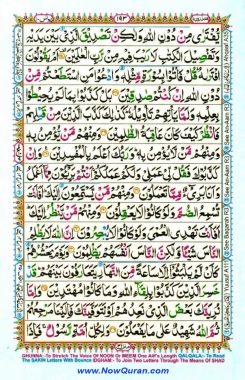 ۱۹۳
یُّفْتَرٰی مِنْ دُوْنِ اللّٰهِ وَلٰكِنْ تَصْدِیْقَ الَّذِیْ بَیْنَ یَدَیْهِ
وَتَفْصِیْلَ الْكِتٰبِ لَا رَیْبَ فِیْهِ مِنْ رَّبِّ الْعٰلَمِیْنَ اَمْ یَقُوْلُوْنَ
افْتَرٰىهُ قُلْ فَاْتُوْا بِسُوْرَةٍ مِّثْلِهٖ وَادْعُوْا مَنِ اسْتَطَعْتُمْ مِّنْ
دُوْنِ اللّٰهِ اِنْ كُنْتُمْ صٰدِقِیْنَ بَلْ كَذَّبُوْا بِمَا لَمْ یُحِیْطُوْا
بِعِلْمِهٖ وَلَمَّا یَاْتِهِمْ تَاْوِیْلُهٗ كَذٰلِكَ كَذَّبَ الَّذِیْنَ مِنْ قَبْلِهِمْ
فَانْظُرْ كَیْفَ كَانَ عَاقِبَةُ الظّٰلِمِیْنَ وَمِنْهُمْ مَّنْ یُّؤْمِنُ بِهٖ
وَمِنْهُمْ مَّنْ لَّا یُؤْمِنُ بِهٖ وَرَبُّكَ اَعْلَمُ بِالْمُفْسِدِیْنَ وَاِنْ
كَذَّبُوْكَ فَقُلْ لِّیْ عَمَلِیْ وَلَكُمْ عَمَلُكُمْ اَنْتُمْ بَرِیْٓـُٔوْنَ مِمَّاۤ اَعْمَلُ
وَاَنَا بَرِیْٓءٌ مِّمَّا تَعْمَلُوْنَ وَمِنْهُمْ مَّنْ یَّسْتَمِعُوْنَ اِلَیْكَ اَفَاَنْتَ
تُسْمِعُ الصُّمَّ وَلَوْ كَانُوْا لَا یَعْقِلُوْنَ وَمِنْهُمْ مَّنْ یَّنْظُرُ اِلَیْكَ
اَفَاَنْتَ تَهْدِی الْعُمْیَ وَلَوْ كَانُوْا لَا یُبْصِرُوْنَ اِنَّ اللّٰهَ لَا یَظْلِمُ
النَّاسَ شَیْـًٔا وَّلٰكِنَّ النَّاسَ اَنْفُسَهُمْ یَظْلِمُوْنَ وَیَوْمَ یَحْشُرُهُمْ
كَاَنْ لَّمْ یَلْبَثُوْۤا اِلَّا سَاعَةً مِّنَ النَّهَارِ یَتَعَارَفُوْنَ بَیْنَهُمْ قَدْ
خَسِرَ الَّذِیْنَ كَذَّبُوْا بِلِقَآءِ اللّٰهِ وَمَا كَانُوْا مُهْتَدِیْنَ وَاِمَّا نُرِیَنَّكَ
بَعْضَ الَّذِیْ نَعِدُهُمْ اَوْ نَتَوَفَّیَنَّكَ فَاِلَیْنَا مَرْجِعُهُمْ
ثُمَّ اللّٰهُ شَهِیْدٌ عَلٰی مَا یَفْعَلُوْنَ وَلِكُلِّ اُمَّةٍ رَّسُوْلٌ فَاِذَا
GHUNNA:-To Stretch The Voice Of NOON Or MEEM One Alif's Length QALQALA:- To Read
The SAKIN Letters With Bounce IDGHAM:- To Join Two Letters Through The Means Of SHAD
www.NowQuran.com